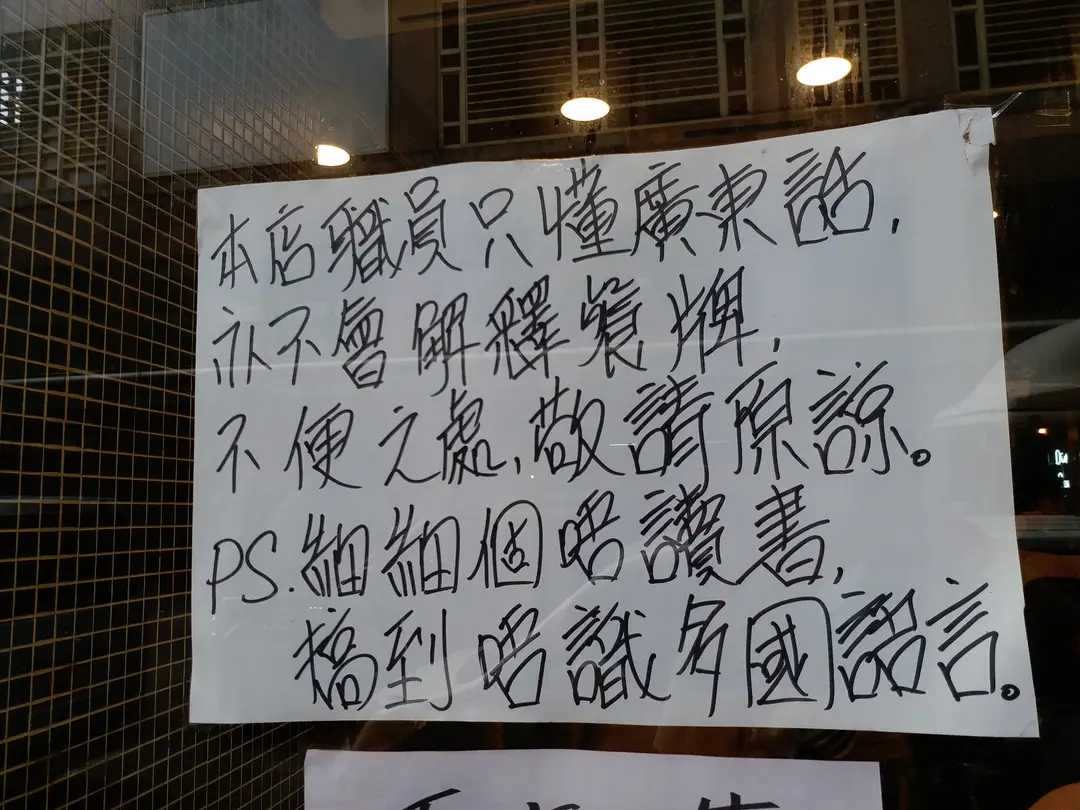 本店職員只懂廣東話,
亦不會解釋餐牌,
不便之處,敬請原諒。
PS.細細個唔讀書,
搞到唔識多國語言。